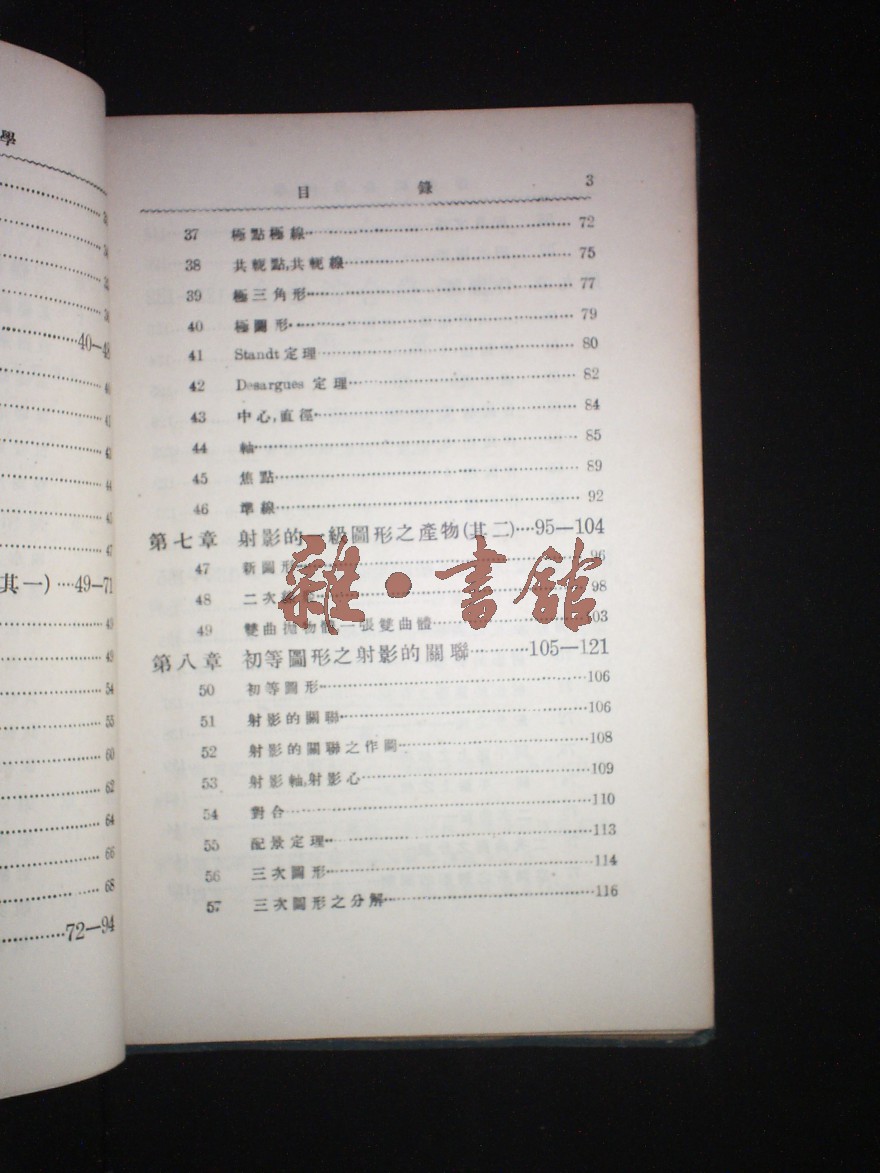 學
34
40—48
40
41
43
44
47
其一)····49—71
49
54
55
60
62
64
66
68
72—94
目 錄 3
37 極點極線 72
38 共軛點,共軛線 75
39 極三角形 77
40 極圖形 79
41 Standt定理 80
42 Desargues 定理 82
43 中心,直徑 84
44 軸 85
45 焦點 89
46 準線 92
第七章 射影的一級圖形之產物(其二)····95—104
47 新圖形 96
48 二次 98
49 雙曲拋物體,一張雙曲體 103
第八章 初等圖形之射影的關聯 105—121
50 初等圖形 106
51 射影的關聯 106
52 射影的關聯之作圖 108
53 射影軸,射影心 109
54 對合 110
55 配景定理 113
56 三次圖形 114
57 三次圖形之分解 116
雜·書館